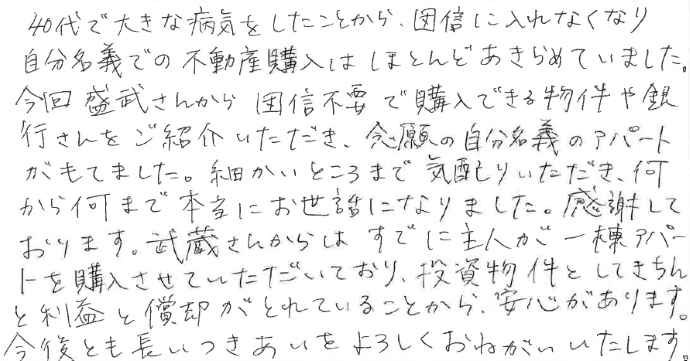 40代で大きな病気をしたことから、団信に入れなくなり
自分名義での不動産購入はほとんどあきらめていました。
今回盛武さんから団信不要で購入できる物件や銀
行さんをご紹介いただき、念願の自分名義のアパート
がもてました。細かいところまで気配りいただき、何
から何まで本当にお世話になりました。感謝して
おります。武蔵さんからはすでに主人が一棟アパー
トを購入させていただいており、投資物件としてきちん
と利益と償却がとれていることから、安心があります。
今後とも長いつきあいをよろしくおねがいいたします。